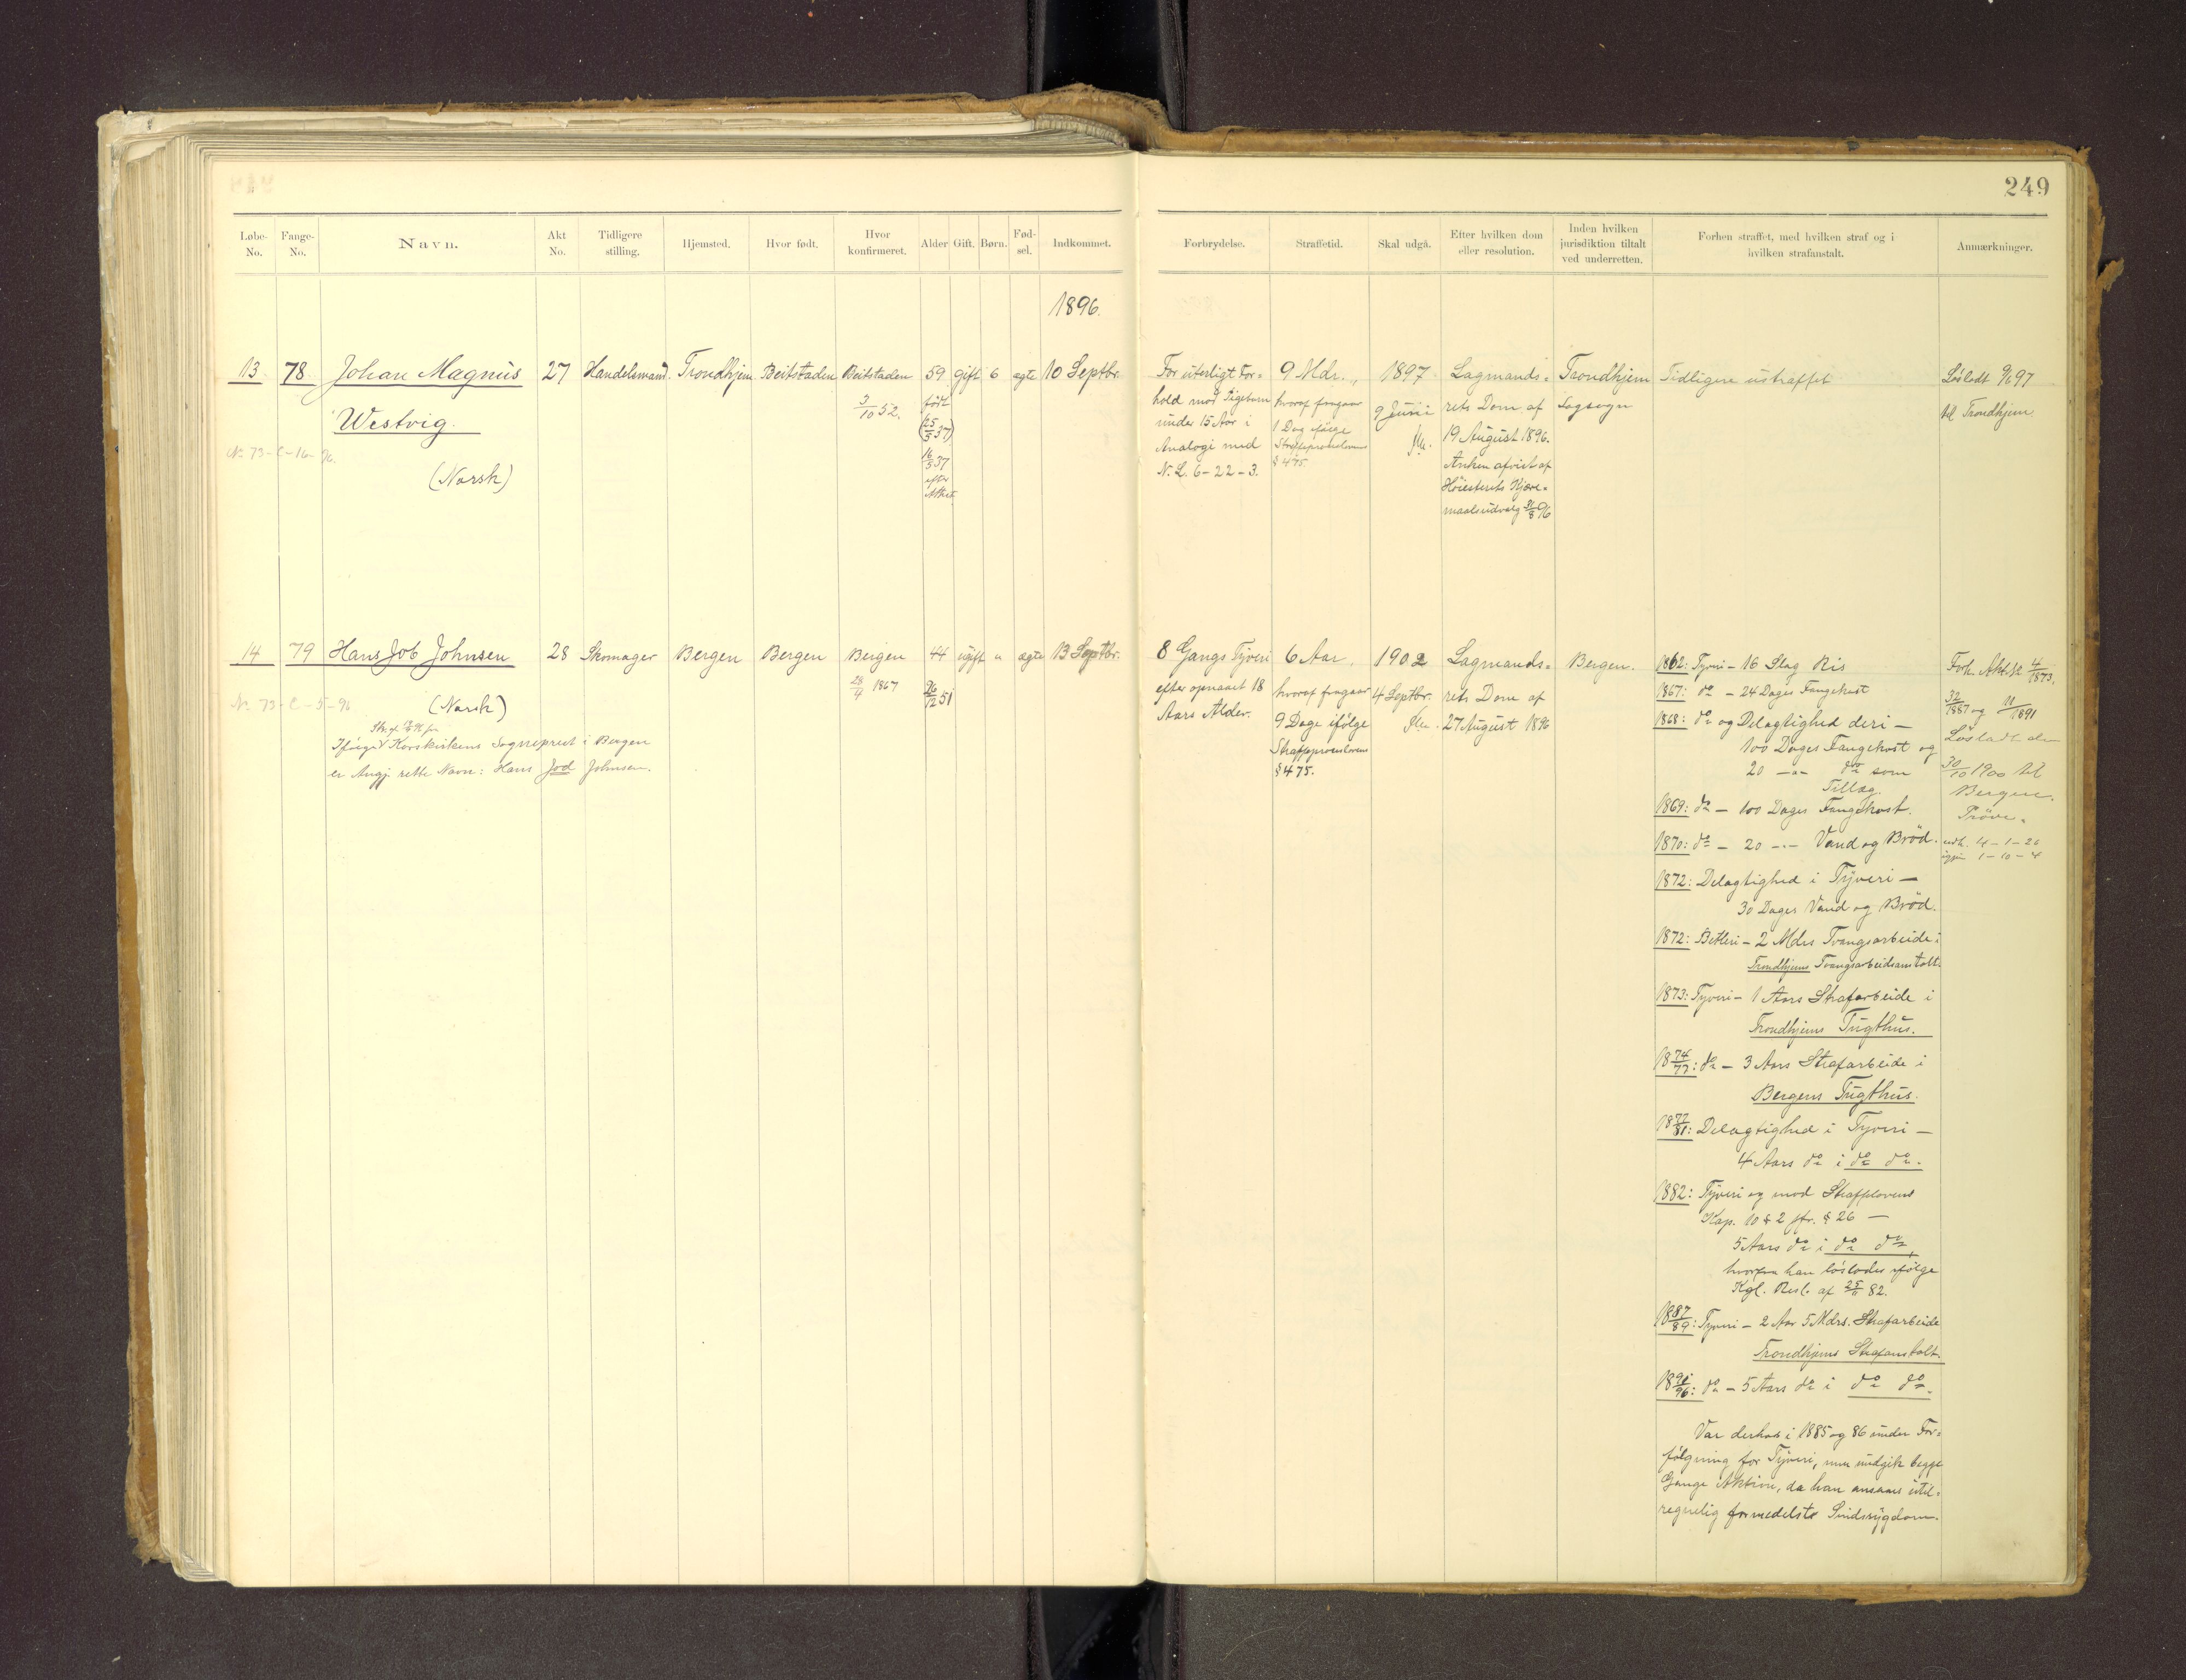 249
Løbe-No.
Fange-No.
Navn.
Akt No.
Tidligere stilling.
Hjemsted.
Hvor født.
Hvor konfirmeret.
Alder
Gift.
Børn.
Fød-sel.
Indkommet.
Forbrydelse.
Straffetid.
Skal udgå.
Efter hvilken dom eller resolution.
Inden hvilken jurisdiktion tiltalt ved underretten.
Forhen straffet, med hvilken straf og i hvilken strafanstalt.
Anmærkninger.
1896.
13
78
Johan Magnus
Westvig.
(Norsk)
No 73-C-16-96.
27
Handelsmand.
Trondhjem
Beitstaden
Beitstaden
3/10 52.
59
født
(25/5 37)
16/5 37
efter
Attest
gift
6
ægte
10 Septbr.
For uterligt For=
hold mod Pigebarn
under 15 Aar i
Analogi med
N. L. 6-22-3.
9 Mdr.,
hvoraf fragaar
1 Dag ifølge
Straffeproceslovens
§ 475.
1897
9 Juni
Lagmands=
rets Dom af
19 August 1896.
Anken afvist af
Høiesterets Kjære=
maalsudvalg 31/8 96
Trondhjem
Lagsogn
Tidligere ustraffet
Løsladt 9/6 97
til Trondhjem
14
79
Hans Job Johnsen
(Norsk)
No 73-C-5-96
Ifølge Korskirkens Sogneprest i Bergen
er Angj. rette Navn: Hans Jod Johnsen.
28
Skomager
Bergen
Bergen
Bergen
28/4 1867
44
26/12 51
ugift
"
ægte
13 Septbr.
8 Gangs Tyveri
efter opnaaet 18
Aars Alder.
6 Aar,
hvoraf fragaar
9 Dage ifølge
Straffeproceslovens
§ 475.
1902
4 Septbr.
Lagmands=
rets Dom af
27 August 1896
Bergen.
1862: Tyveri - 16 Slag Ris
1867: do - 24 Dages Fangekost
1868: do og Delagtighed deri -
100 Dages Fangekost og
20 -"- do som
Tillæg.
1869: do - 100 Dages Fangekost.
1870: do - 20 -"- Vand og Brød.
1872: Delagtighed i Tyveri -
30 Dages Vand og Brød.
1872: Betleri - 2 Mdrs Tvangsarbeide i
Trondhjems Tvangsarbeidsanstalt.
1873: Tyveri - 1 Aars Strafarbeide i
Trondhjems Tugthus.
1874/77: do - 3 Aars Strafarbeide i
Bergens Tugthus.
1877/81: Delagtighed i Tyveri -
4 Aars do i do do.
1882: Tyveri og mod Straffelovens
Kap. 10 § 2 jfr. § 26 -
5 Aars do i do do,
hvorfra han løslodes ifølge
Kgl. Resl. af 25/11 82.
1887/89: Tyveri - 2 Aar 5 Mdrs. Strafarbeide
Trondhjems Strafanstalt.
1891/96: do - 5 Aars do i do do.
Var derhos i 1885 og 86 under For=
følgning for Tyveri, men undgik begge
Gange Aktion, da han ansaaes util=
regnelig formedelst Sindssygdom.
Forh. Akt No 4/1873,
32/1887 og 11/1891
Løsladt den
30/10 1900 til
Bergen.
Prøve.
udh. 4-1-26
igjen 1-10-4